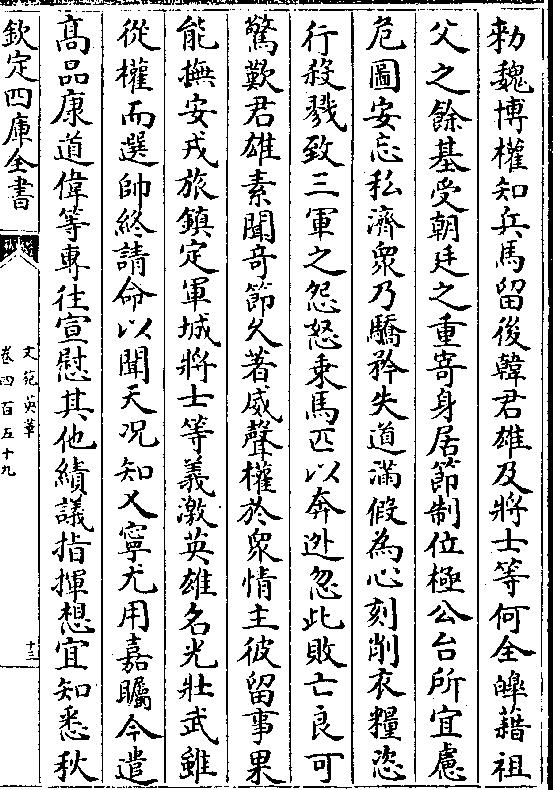 勅魏博權知兵馬留後韓君雄及將士等何全皥藉祖
父之餘基受朝廷之重寄身居節制位極公台所宜慮
危圖安忘私濟衆乃驕矜失道滿假為心刻削衣糧恣
行殺戮致三軍之怨怒乗馬匹以奔逃忽此敗亡良可
驚歎君雄素聞竒節久著威聲權於衆情主彼留事果
能撫安戎旅鎮定軍城將士等義激英雄名光壯武雖
從權而選帥終請命以聞天况知乂寧尤用嘉矚今遣
髙品康道偉等專往宣慰其他續議指揮想宜知悉秋
欽定四庫全書
文苑英華
卷四百五十九
十三